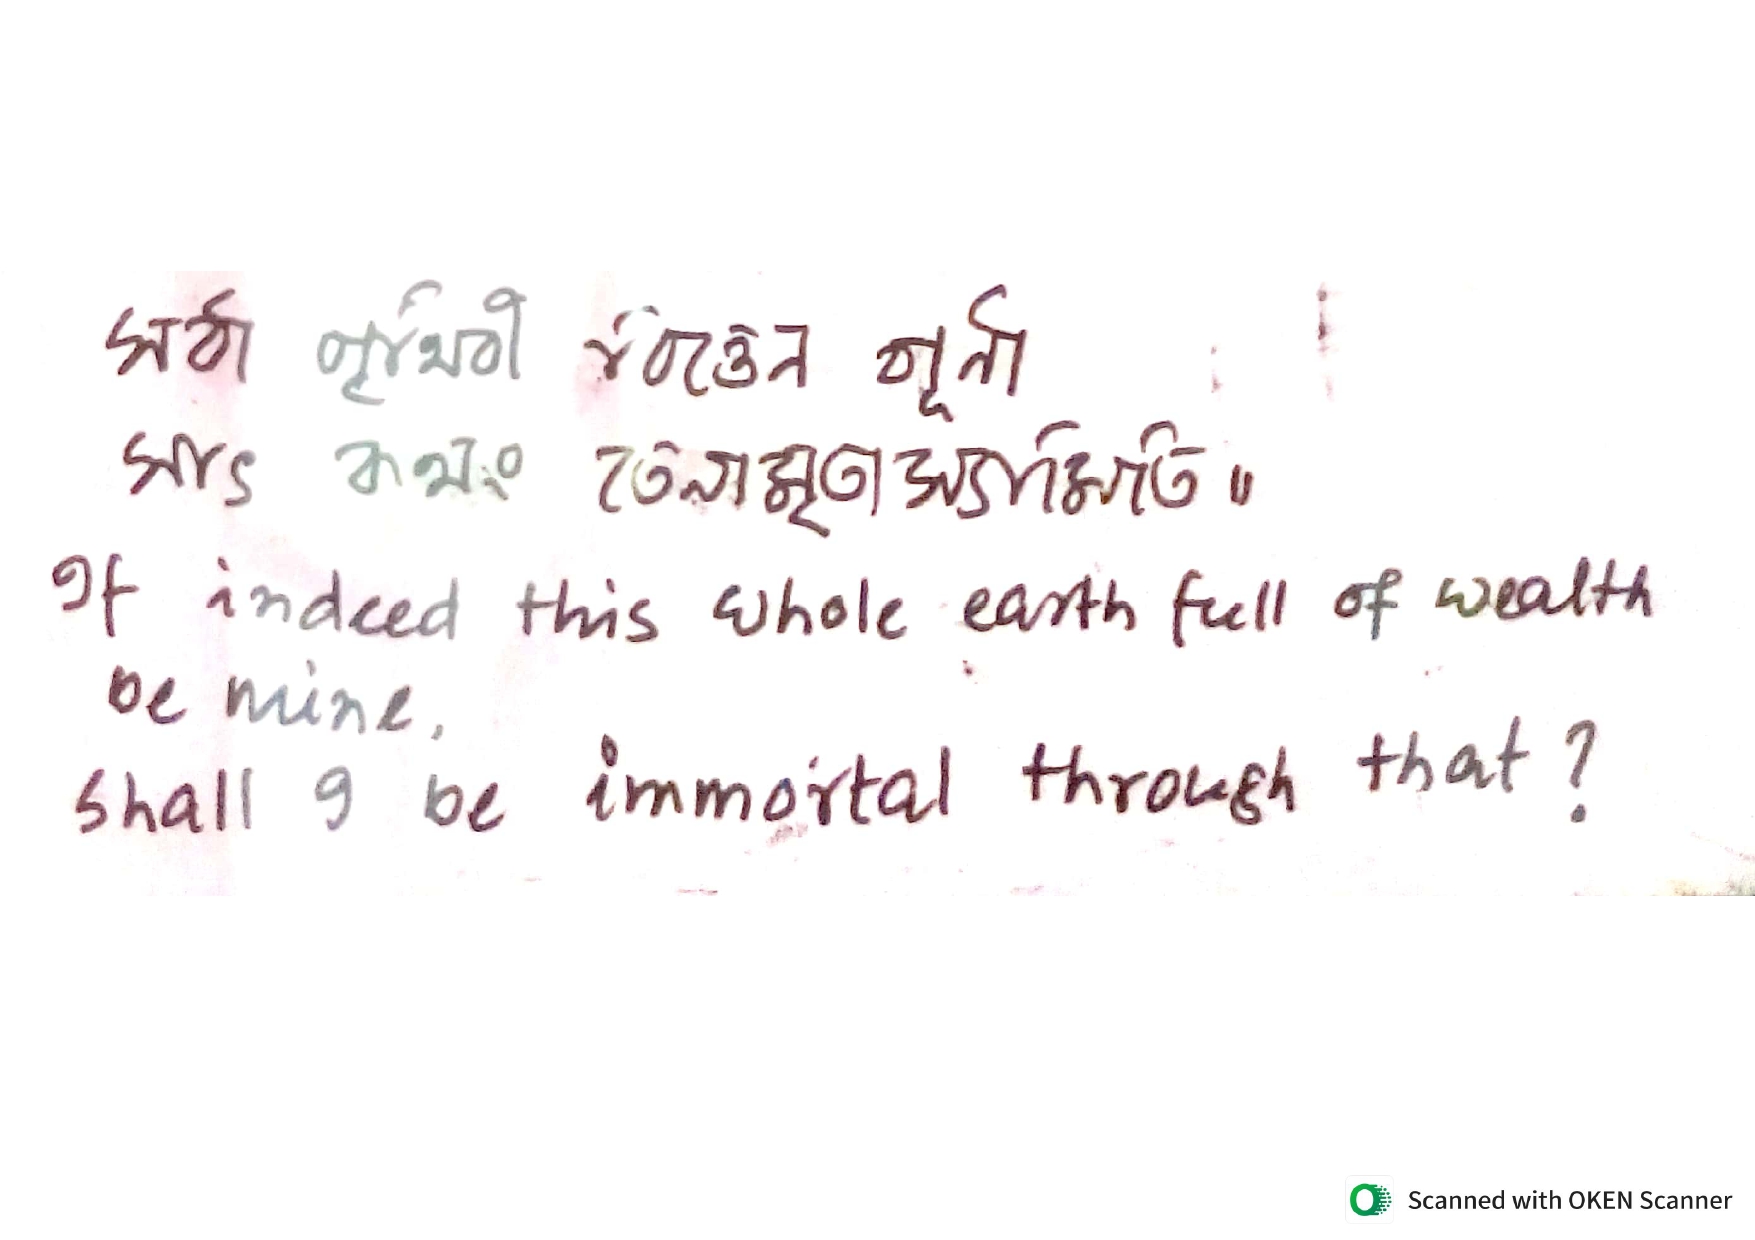 সর্বা পৃথিবী বিত্তেন পূর্না
স্যাৎ কথং তেনামৃতা স্যামিতি॥
If indeed this whole earth full of wealth
be mine,
shall I be immortal through that?
Scanned with OKEN Scanner